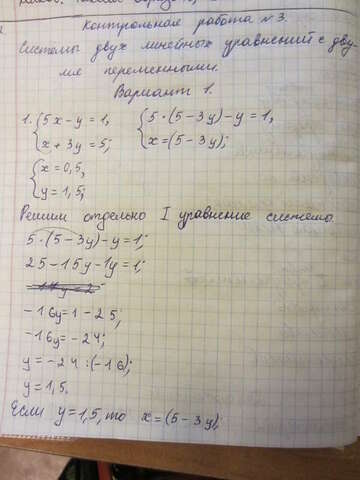 Контрольная работа №3.
Системы двух линейных уравнений с дву
мя переменными.
Вариант 1.
1. {5x-y=1, {5·(5-3y)-y=1,
{x+3y=5; {x=(5-3y);
{x=0,5,
{y=1,5;
Решим отдельно I уравнение системы.
5·(5-3y)-y=1;
25-15y-1y=1;
-16y=1-25,
-16y=-24;
y=-24:(-16);
y=1,5.
Если y=1,5, то x=(5-3y);